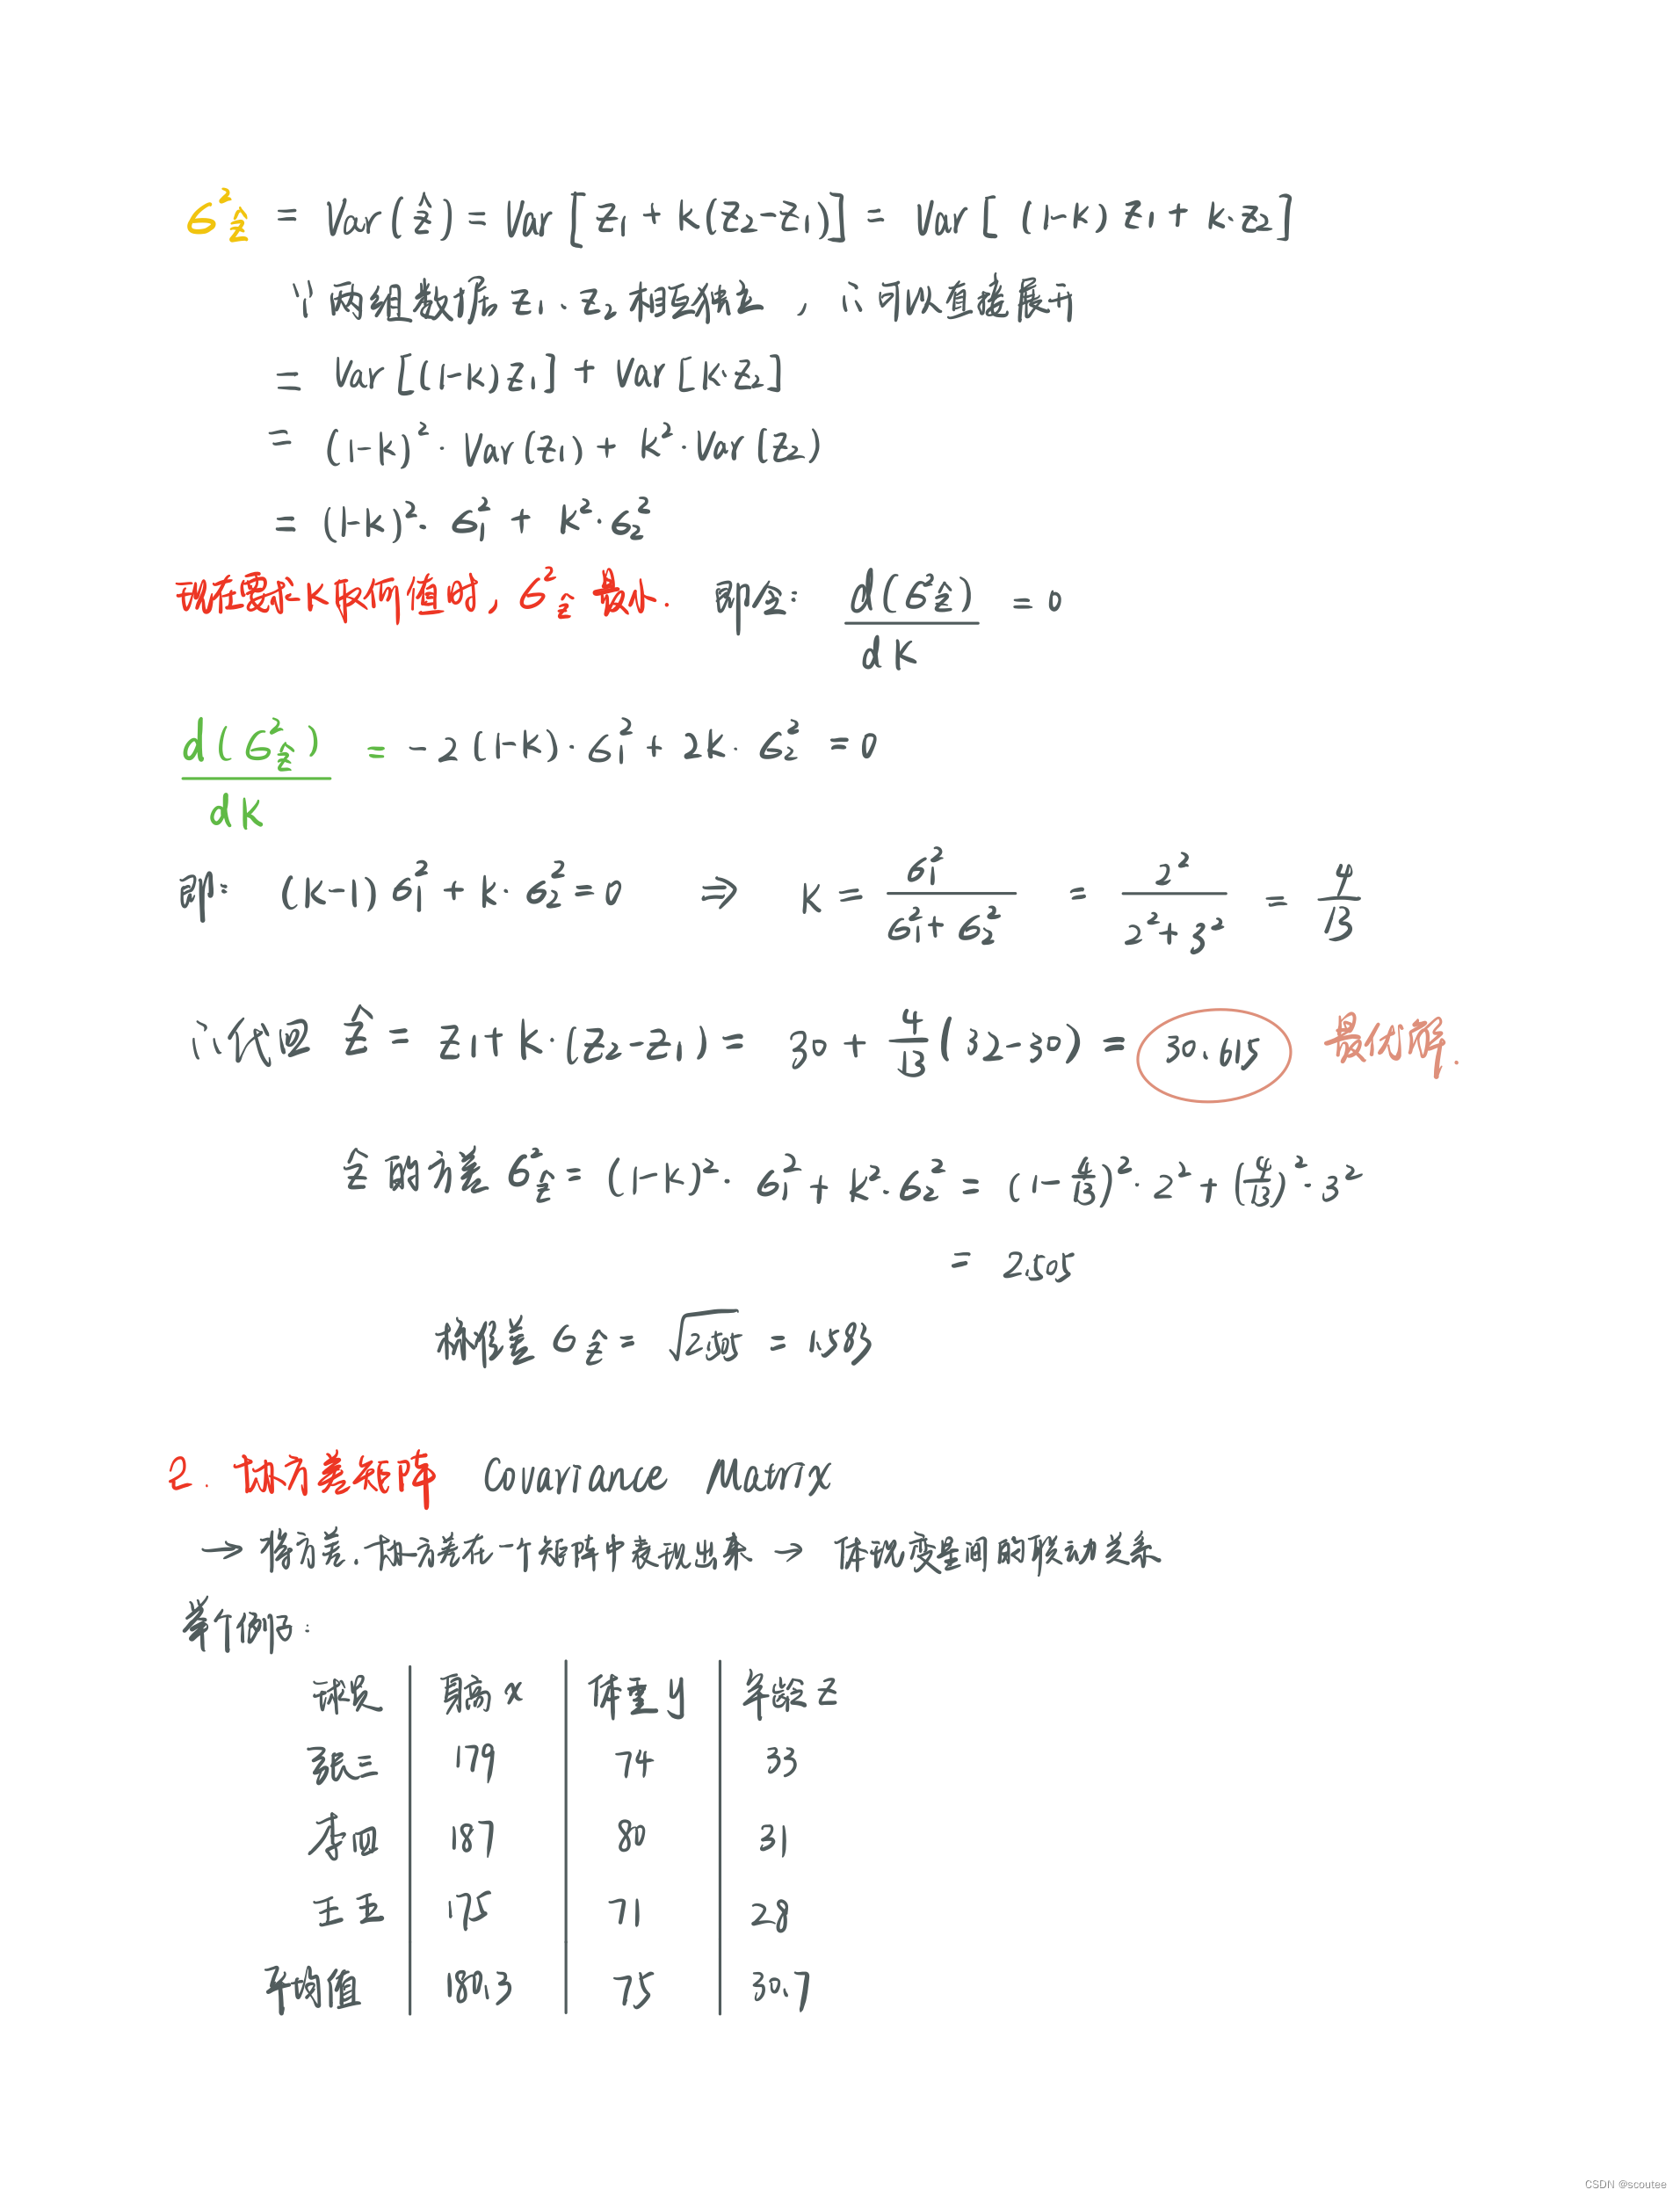 σ²_ẑ = Var(ẑ) = Var[z₁ + k(z₂-z₁)] = Var[(1-k)z₁ + k·z₂]
∵ 两组数据 z₁、z₂ 相互独立，∴ 可以直接展开
= Var[(1-k)z₁] + Var[k·z₂]
= (1-k)²· Var(z₁) + k²·Var(z₂)
= (1-k)²· σ₁² + k²·σ₂²
现在需求k取何值时, σ²_ẑ 最小. 即令: d(σ²_ẑ)/dk = 0
d(σ²_ẑ)/dk = -2(1-k)·σ₁² + 2k·σ₂² = 0
即: (k-1)σ₁² + k·σ₂² = 0 ⇒ k = σ₁²/(σ₁²+σ₂²) = 2²/(2²+3²) = 4/13
∴代回 ẑ = z₁ + k·(z₂-z₁) = 30 + 4/13(32-30) = 30.615 最优解.
ẑ 的方差 σ²_ẑ = (1-k)²· σ₁² + k²·σ₂² = (1-4/13)²·2² + (4/13)²·3²
= 2.505
标准差 σ_ẑ = √2.505 = 1.583
2. 协方差矩阵 Covariance Matrix
→ 将方差、协方差在一个矩阵中表现出来 → 体现变量间的联动关系
举个例子:
球员 身高 x 体重 y 年龄 z
张三 179 74 33
李四 187 80 31
王五 175 71 28
平均值 180.3 75 30.7
CSDN @scoutee